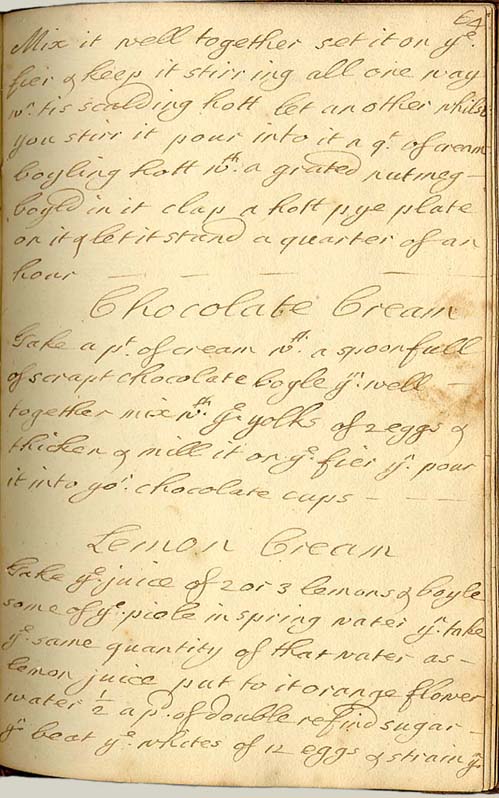 64
Mix it well together set it on yᵉ.
fier & keep it stirring all one way
wⁿ. tis scalding hott let another whilst
you stirr it pour into it a qᵗ. of cream
boyling hott wᵗʰ. a grated nutmeg -
boyld in it clap a hott pye plate
on it & let it stand a quarter of an
hour — — — —
Chocolate Cream
Take a pᵗ. of cream wᵗʰ. a spoonfull
of scrapt chocolate boyle yᵐ. well -
together mix wᵗʰ. yᵉ. yolks of 2 eggs &
thicken & mill it on yᵉ. fier yⁿ. pour
it into yoʳ. chocolate cups - —
Lemon Cream
Take yᵉ. juice of 2 or 3 lemons & boyle
some of yᵉ. piele in spring water yⁿ. take
yᵉ. same quantity of that water as -
lemon juice put to it orange flower
water ½ a pᵈ. of double refind sugar -
yⁿ beat yᵉ. whites of 12 eggs & strain yᵐ.